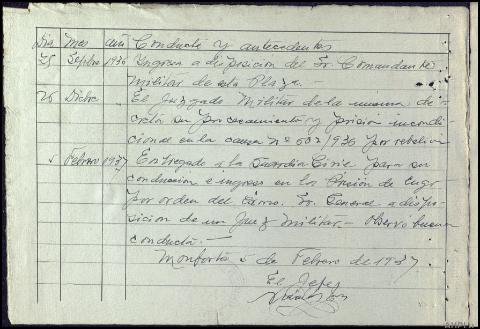 Dia Mes año Conducta y antecedentes
25 Septbre 1936 Ingresa a disposicion del Sr. Comandante
Militar de esta Plaza.
26 Dicbre El Juzgado Militar de la misma de-
creta su procesamiento y prisión incondi-
cional en la causa nº 502/936 por rebelion
5 Febrero 1937 Entregado a la Guardia Civil para su
conduccion e ingreso en la Prisión de Lugo
por orden del Excmo. Sr. General a dispo-
sicion de un Juez Militar.- Observó buena
conducta.-
Monforte 5 de Febrero de 1937
El Jefe,